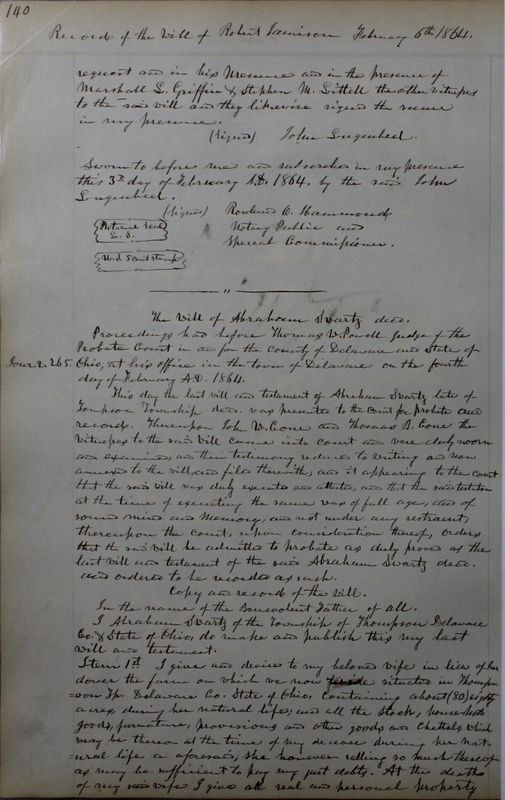 140
Record of the Will of Robert Jamison February 6th 1864.
request and in his presence and in the presence of
Marshall L. Griffin & Stephen M. Littell the other witnesses
to the said will and they likewise signed the same
in my presence.
(Signed) John Lugenbeel.
Sworn to before me and subscribed in my presence
this 3d day of February A.D. 1864. by the said John
Lugenbeel.
(Signed) Rowland C. Hammond
Notary Public and
Special Commissioner.
Notarial Seal
L.S.
The Will of Abraham Swartz decd.
Proceedings had before Thomas W. Powell Judge of the
Probate Court in and for the County of Delaware and State of
Jour. 2. 265. Ohio, at his office in the town of Delaware on the fourth
day of February A.D. 1864.
This day the last will and testament of Abraham Swartz late of
Tompson Township decd. was presented to the Court for probate and
record. Thereupon John W. Cone and Thomas B. Cone the
witnesses to the said Will came into court and were duly sworn
and examined, and their testimony reduced to writing and now
annexed to the will, and filed therewith, and it appearing to the court
that the said will was duly executed and attested, and that the said testator
at the time of executing the same was of full age, and of
sound mind and memory, and not under any restraint,
thereupon the court, upon consideration thereof, orders
that the said will be admitted to probate as duly proved as the
last will and testament of the said Abraham Swartz decd.
and ordered to be recorded as such.
Copy and record of the Will.
In the name of the Benevolent Father of all.
I Abraham Swartz of the township of Thompson Delaware
Co. & State of Ohio, do make and publish this my last
will and testament.
Item 1st I give and devise to my beloved wife in lieu of her
dower the farm on which we now situated in Thomp
=son Tp. Delaware Co. State of Ohio, containing about (80) eighty
acres, during her natural life, and all the stock, household
goods, furnature, provisions and other goods and chattels which
may be thereon at the time of my decease during her nat
=ural life as aforesaid, she however selling so much thereof
as may be sufficient to pay my just debts. At the death
of my said wife I give all real and personal property